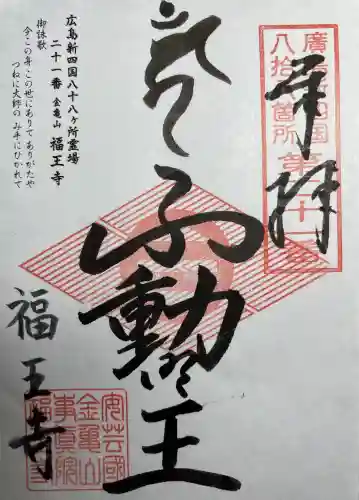 廣島新四国
八拾八箇所
第二十一番
奉拝
不動明王
広島新四国八十八ヶ所霊場
二十一番 金亀山 福王寺
御詠歌
今この身 この世にありて ありがたや
つねに大師の み手にひかれて
福王寺
安芸國
金亀山
事真院
福王寺